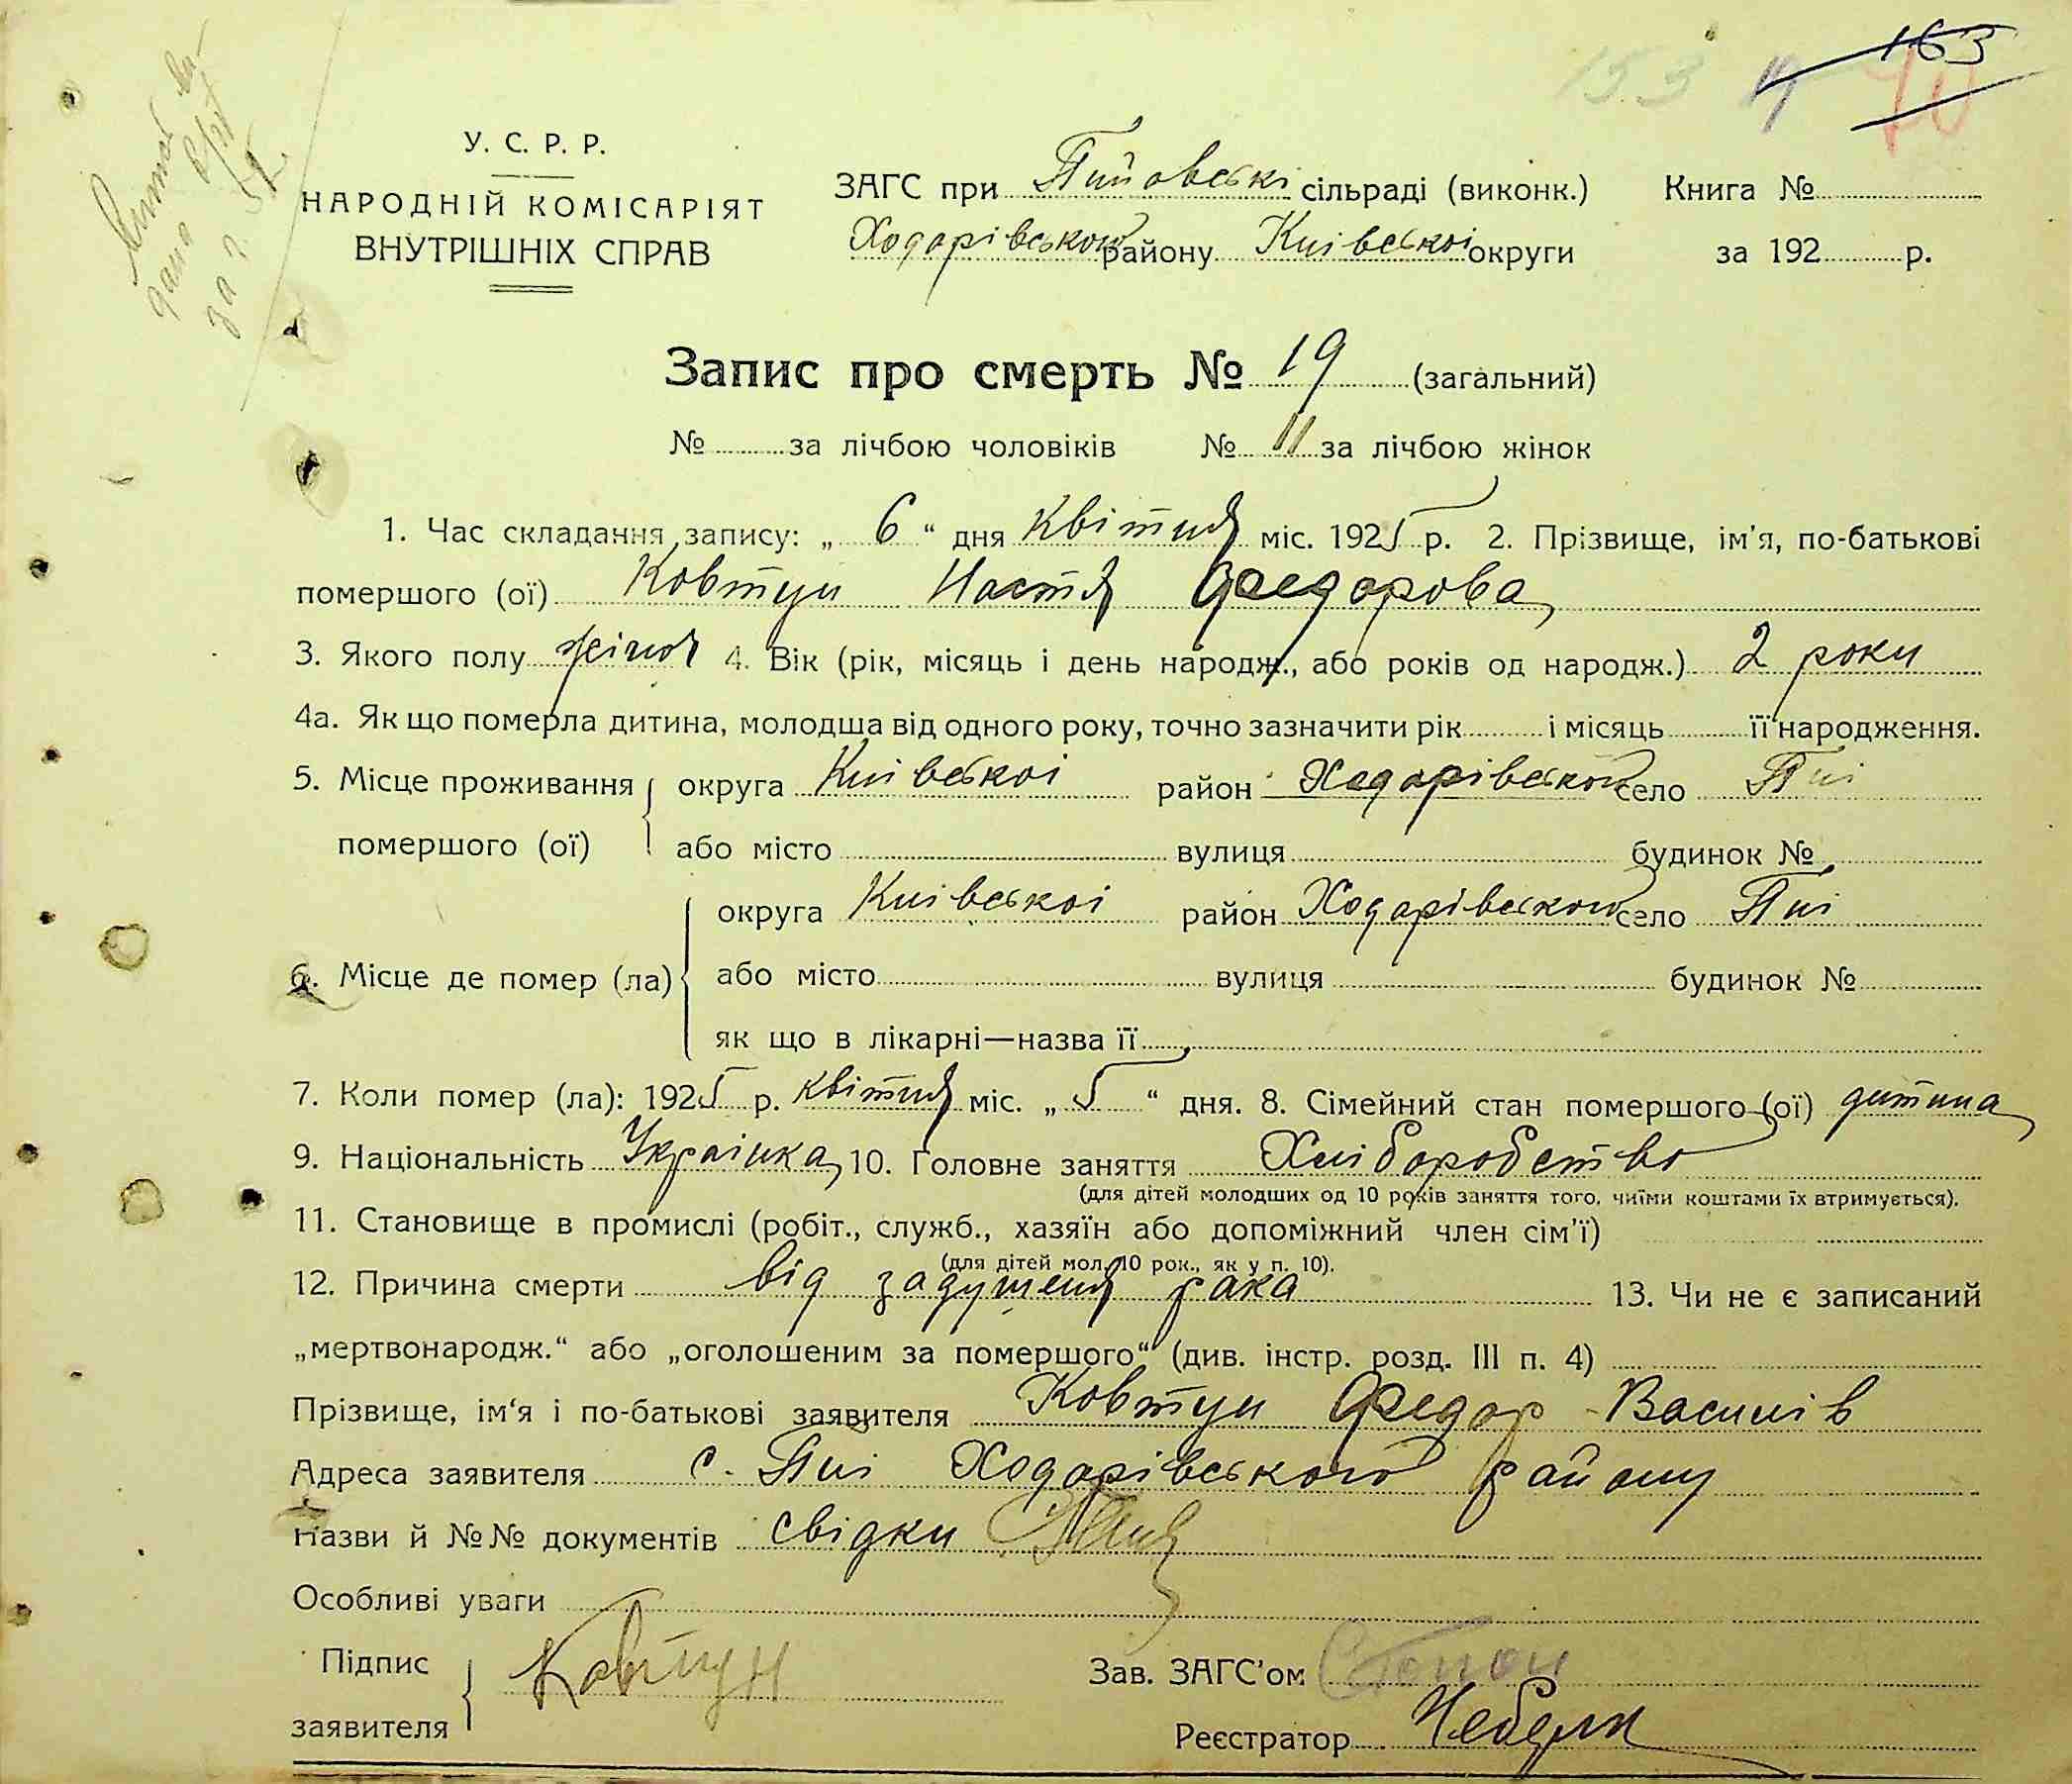 163
153 19 70
У. С. Р. Р.
НАРОДНІЙ КОМІСАРІЯТ
ВНУТРІШНІХ СПРАВ
ЗАГС при Пиіовські сільраді (виконк.) Книга №
Ходорівського району Київськоі округи за 192 р.
Запис про смерть № 19 (загальний)
№ за лічбою чоловіків № 11 за лічбою жінок
1. Час складання запису: „ 6 “ дня Квітня міс. 1925 р. 2. Прізвище, ім'я, по-батькові
помершого (ої) Ковтун Настя Федорова
3. Якого полу жіноч 4. Вік (рік, місяць і день народж., або років од народж.) 2 роки
4а. Як що померла дитина, молодша від одного року, точно зазначити рік і місяць її народження.
5. Місце проживання округа Київськоі район Ходорівського село Пиі
помершого (ої) або місто вулиця будинок №
округа Київськоі район Ходорівського село Пиі
6. Місце де помер (ла) або місто вулиця будинок №
як що в лікарні—назва її
7. Коли помер (ла): 1925 р. квітня міс. „ 5 “ дня. 8. Сімейний стан помершого (ої) дитина
9. Національність Украінка 10. Головне заняття Хліборобство
(для дітей молодших од 10 років заняття того, чиїми коштами їх втримується).
11. Становище в промислі (робіт., служб., хазяїн або допоміжний член сім'ї)
(для дітей мол. 10 рок., як у п. 10).
12. Причина смерти від задушеня рака 13. Чи не є записаний
„мертвонародж.“ або „оголошеним за помершого“ (див. інстр. розд. III п. 4)
Прізвище, ім'я і по-батькові заявителя Ковтун Федор Василів
Адреса заявителя с. Пиі Ходорівського району
Назви й №№ документів свідки
Особливі уваги
Підпис
заявителя Ковтун
Зав. ЗАГС'ом
Реєстратор